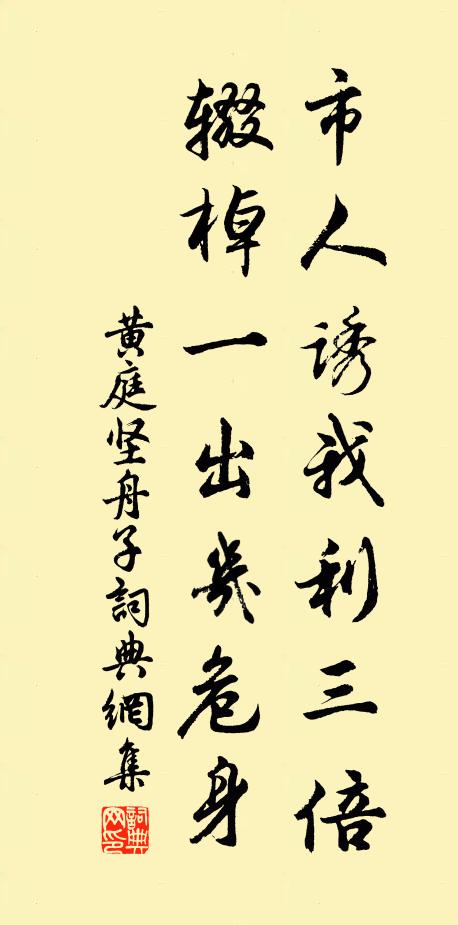 市人诱我利三倍
辍棹一出幾危身
黄庭坚舟子詞典網集
詞典网印